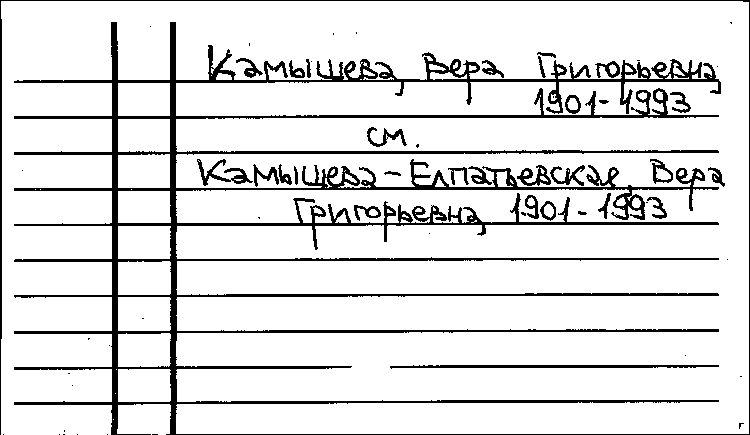 Камышева, Вера Григорьевна,
1901-1993
см.
Камышева-Елпатьевская, Вера
Григорьевна, 1901-1993